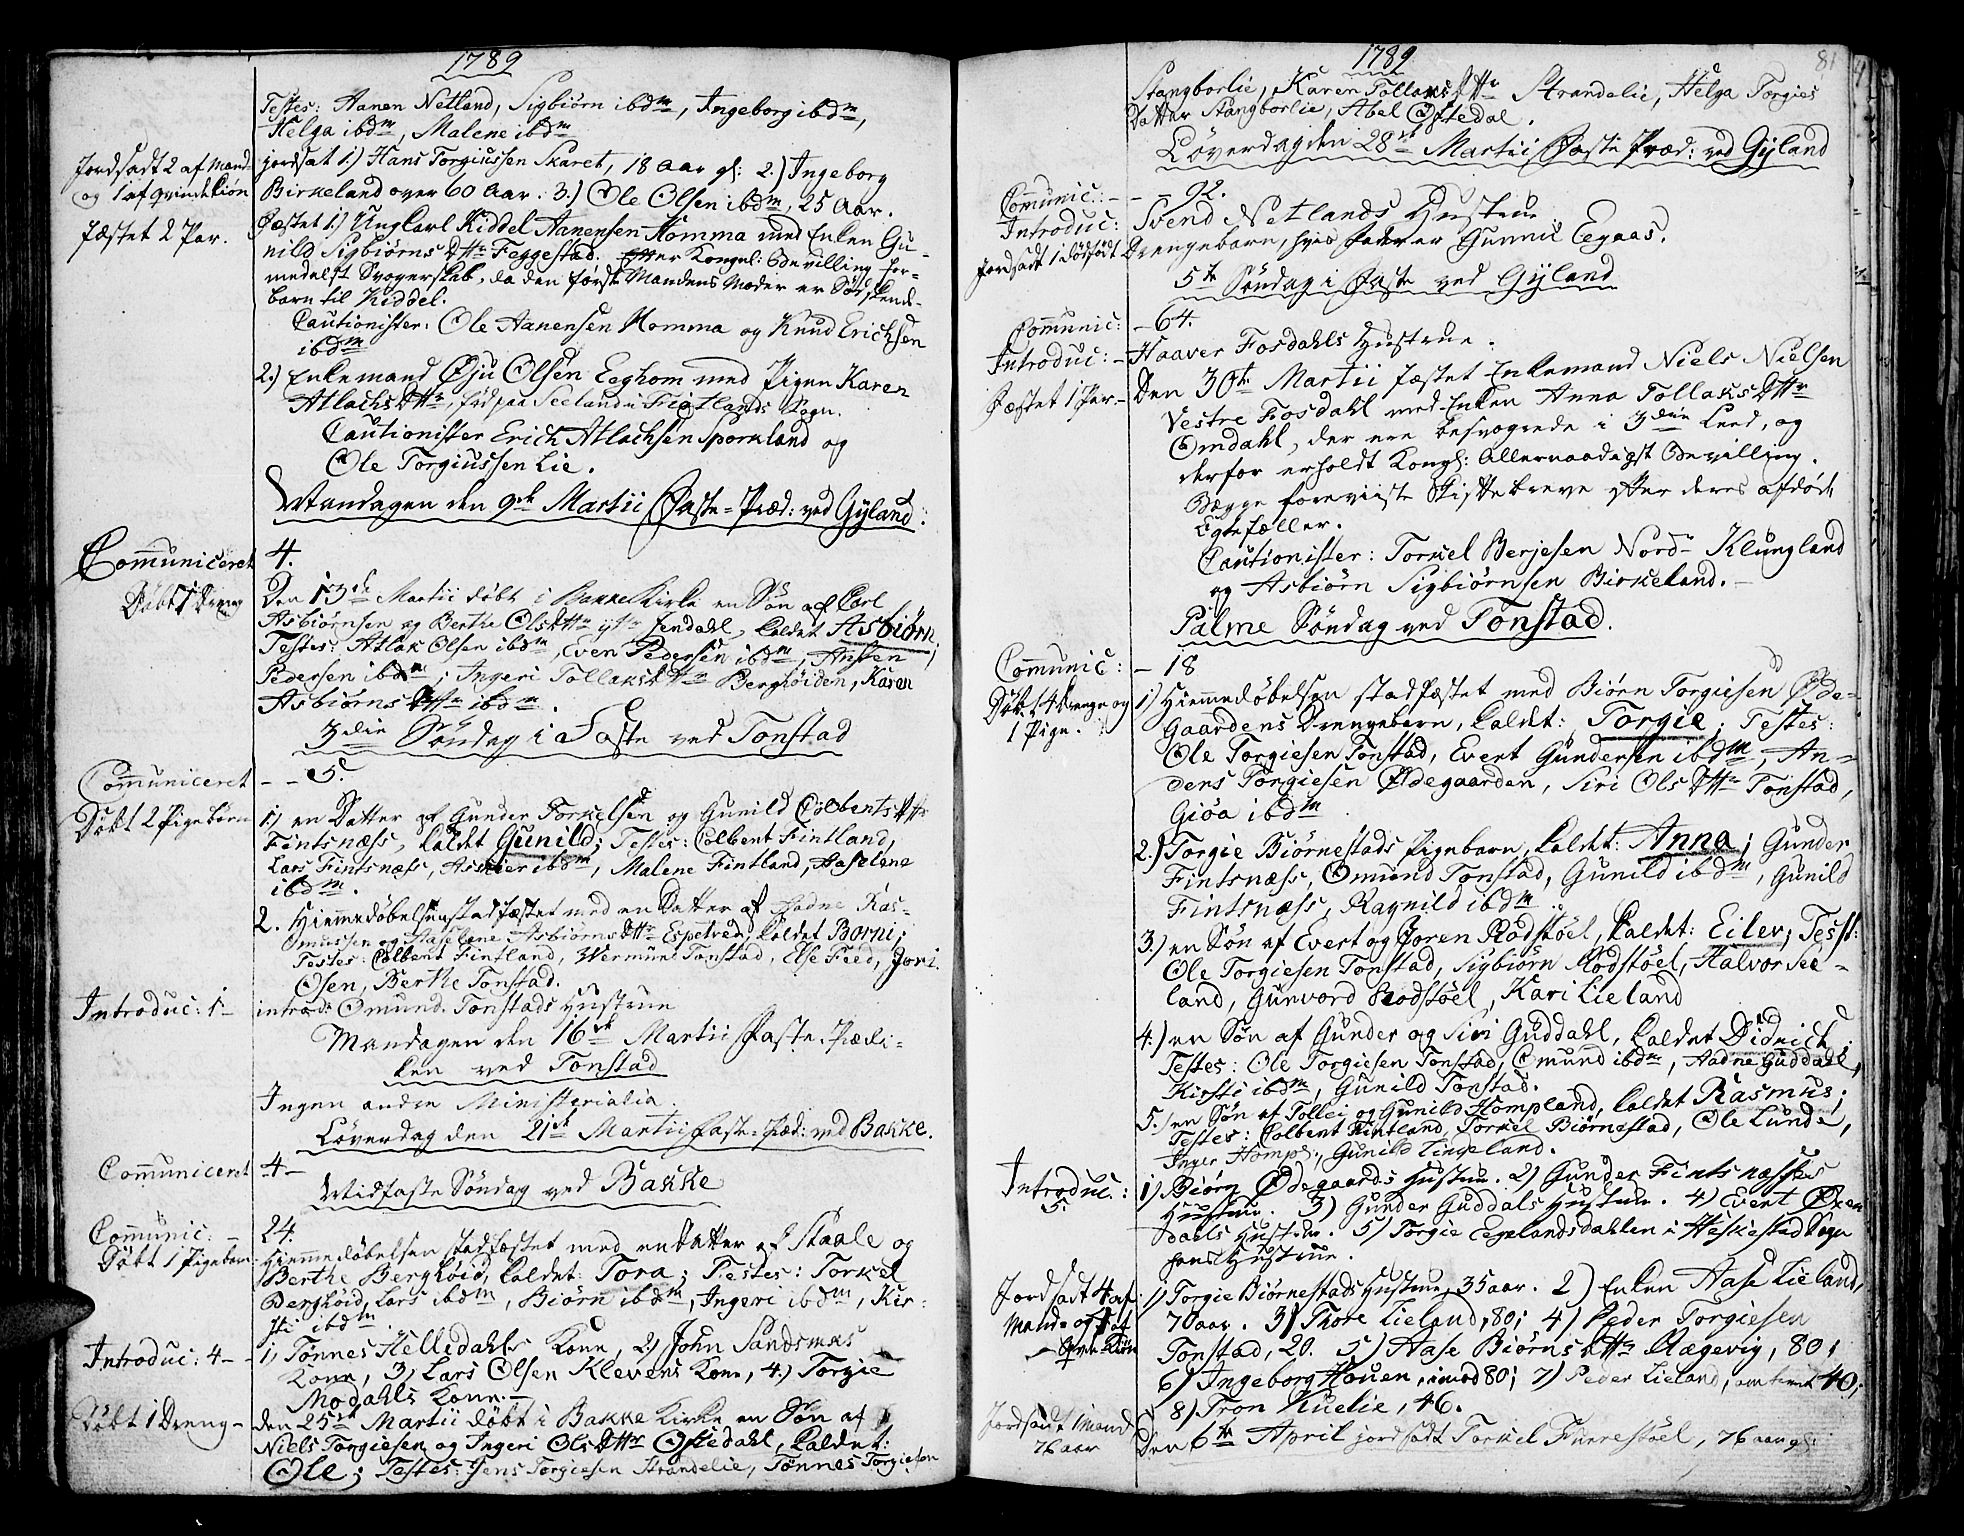 1789
Testes: Aanen Netland, Sigbiørn ibdm, Ingeborg ibdm,
Helga ibdm, Malene ibdm
Jordsadt 2 af Mand-
og 1 af qvindekiøn
jordsat 1) Hans Torgiussen Skaret, 18 Aar gl: 2.) Ingeborg
Birkeland over 60 Aar. 3.) Ole Olsen ibdm, 25 Aar.
Fæstet 2 Par.
Fæstet 1.) Ungkarl Kiddel Aanensen Homma med Enken Gu-
nild Sigbiørns Dttr Feggestad. Efter Kongel: Bevilling for-
medelst Svogerskab, da den første Mandens Moder er Sødskende-
barn til Kiddel.
Cautionister: Ole Aanensen Homma og Knud Erichsen
ibdm
2.) Enkemand Øju Olsen Eeghom med Pigen Karen
Atlachs Dttr, fød paa Seeland i Sogn.
Cautionister Erich Atlachsen Sporkland og
Ole Torgiussen Lie.
Mandagen den 9de Martii Faste-Præd: ved Gyland:
Communiceret 4.
Døbt 1 Dreng
Den 13de Martii døbt i Bakke Kirke en Søn af Carl
Asbiørnsen og Berthe Ols Dttr ytr Eendahl, kaldet Asbiørn;
Testes: Atlak Olsen ibdm, Even Pedersen ibdm, Ansten
Pedersen ibdm; Ingeri Tollaks Dttr Berghøiden, Karen
Asbiørns Dttr ibdm.
3die Søndag i Faste ved Tonstad
Communiceret - - 5.
Døbt 2 Pigebørn
1.) en Datter af Gunder Torkelsen og Gunild Colbents Dttr
Fintsnæss, kaldet Gunild; Testes: Colbent Fintland,
Lars Fintsnæss, Askier ibdm, Malene Fintland, Aaselene
ibdm.
2. Hiemmedøbelsen stadfæstet med en Datter af Aadne Ras-
mussen og Aaselene Asbiørns Dttr Espetved, kaldet Borni;
Testes: Colbent Fintland, Wermund Tonstad, Else Feed, Jori
Osen, Berthe Tonstad.
Introduc: 1-
introd: Omund Tonstads Hustrue
Mandagen den 16de Martii Faste-Prædi-
ken ved Tonstad
Ingen andre Ministerialia.
Løverdag den 21de Martii Faste-Præd: ved Bakke.
Communiceret -4-
Midfaste Søndag ved Bakke
Communic: - 24.
Døbt 1 Pigebarn
Hiemmedøbelsen stadfæstet med en Datter af Staale og
Berthe Berghøid, kaldet: Tora; Testes: Torkel
Berghøid, Lars ibdm, Biørn ibdm, Ingeri ibdm, Kir-
sti ibdm.
Introduc: 4-
1, Tønnes Hellidahls Kone, 2, John Sandsmas
Kone, 3, Lars Olsen Klevens Kone, 4.) Torgie
Modahls Kone.-
Døbt 1 Dreng-
den 25de Martii døbt i Bakke Kirke en Søn af
Niels Torgiesen og Ingeri Ols Dttr Oftedahl, kaldet:
Ole; Testes: Jens Torgiesen Strandelie, Tønnes Torgiesen
1789
81
Stangborlie, Karen Tollaks Dttr Strandelie, Helga Torgies
Datter Stangborlie, Abel Oftedal.
Løverdag den 28de Martii Faste Præd: ved Gyland
Communic: - - 92.
Introduc: Svend Netlands Hustrue
Jordsadt 1 dødfødt Drengebarn, hvis Fader er Gunnil Eegaas.
5te Søndag i Faste ved Gyland
Communic: -64.
Introduc: - Haaver Fosdahls Hustrue.
Fæstet 1 Par.-
Den 30te Martii fæstet Enkemand Niels Nielsen
Vestre Fosdahl med Enken Anna Tollaks Dttr
Omdahl, der ere besvogrede i 3die Leed, og
derfor erholdt Kongl: Allernaadigst Bevilling.
Begge foreviiste Skiftebreve efter deres afdøde
Egtefæller.
Cautionister: Torkel Berjesen Nord- Klungland
og Asbiørn Sigbiørnsen Birkeland.-
Palme Søndag ved Tonstad.
Communic: - 18
Døbt 4 Drenge og
1 Pige.
1) Hiemmedøbelsen stadfæstet med Biørn Torgiesen Øde-
Gaardens Drengebarn, kaldet: Torgie; Testes:
Ole Torgiesen Tonstad, Evert Gundersen ibdm, An-
ders Torgiesen Ødegaarden, Siri Ols Dttr Tonstad,
Gioa ibdm
2.) Torgie Biørnestads Pigebarn, kaldet: Anna; Gunder
Fintsnæss, Omund Tonstad, Gunild ibdm, Gunild
Fintsnæss, Ragnild ibdm.
3.) en Søn af Evert og Joren Rodstøel, kaldet: Eiler; Test:
Ole Torgiesen Tonstad, Sigbiørn Rodstøel, Halvor See-
land, Gunvord Rodstøel, Kari Lieland
4.) en Søn af Gunder og Siri Guddahl, kaldet Didrich;
Testes: Ole Torgiesen Tonstad, Omund ibdm, Aadne Guddahl,
Kirsti ibdm, Gunild Tonstad.
5.) en Søn af Tollei og Gunild Hompland, kaldet Rasmus;
Testes: Colbent Fintland, Torkel Biørnestad, Ole Lunde,
Inger Homp:, Gunild Lingeland.
Introduc:
5.
1) Biørn Ødegaards Hustrue. 2) Gunder Fintsnæsses
Hustrue. 3) Gunder Guddals Hustrue. 4) Evert Øxen
daels Hustrue. 5) Torgie Egelandsdahlen i Heskestad Sogn
hans Hustrue.
Jordsadt 4 af
Mand- og 4 af
Qvindekiøn
1) Torgie Biørnestads Hustrue, 35 aar. 2) Enken Aase Lieland,
70 aar. 3) Thore Lieland, 80; 4) Peder Torgiesen
Tonstad, 20. 5) Aase Biørns Dttr Rægevig, 80;
6) Ingeborg Houen, imod 80; 7) Peder Lieland, omtrent 40;
8) Tron Kuelie, 46.
Jordsadt 1 Mand
76 aar
Den 6te April jordsadt Torkel Furrestøel, 76 aar gl: